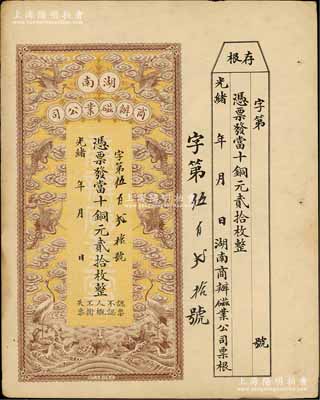 上海陽明拍賣
存根
字第 號
憑票發當十銅元貳拾枚整
光緒 年 月 日湖南商辦磁業公司票根
字第伍百 拾 號
湖南
商辦磁業公司
字第伍百 拾 號
憑票發當十銅元貳拾枚整
光緒 年 月 日
認票
不認人
失票